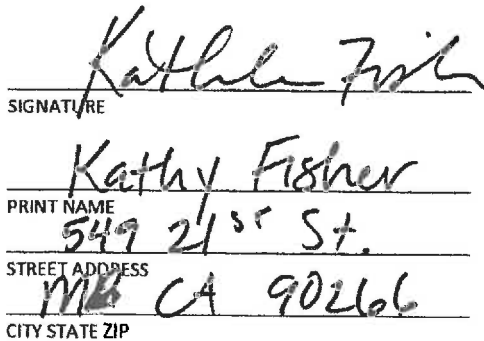 Kathleen Fish
SIGNATURE
Kathy Fisher
PRINT NAME
549 21st St.
STREET ADDRESS
MB CA 90266
CITY STATE ZIP